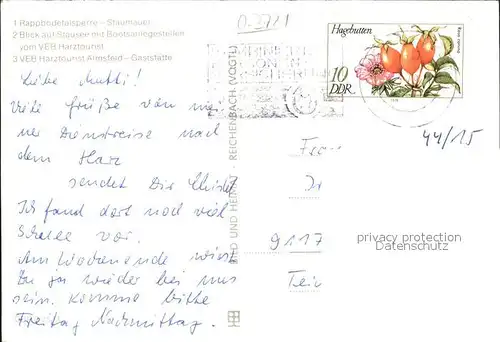 1 Rappbodetalsperre – Staumauer
2 Blick auf Stausee mit Bootsanlegestellen
vom VEB Harztourist
3 VEB Harztourist Almsfeld – Gaststätte
Hagebutten
Rosa canina
10
DDR
44/15
Liebe Mutti!
Viele Grüße von mei
ner Dienstreise nach
dem Harz
sendet Dir
Ich fand dort noch viel
Schnee vor.
Am Wochenende wirst
Du ja wieder bei uns
sein. Komme bitte
Freitag Nachmittag.
BILD UND HEIMAT · REICHENBACH (VOGTL)
9117
privacy protection
Datenschutz